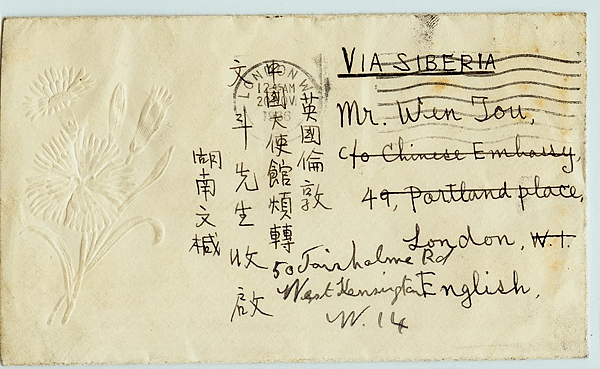 VIA SIBERIA
Mr. Wen Tou,
c/o Chinese Embassy,
49, Portland place,
London, W.1.
English,
50 Fairholme Rd
West Kensington
W. 14
英國倫敦
中國大使館煩轉
文斗先生收啟
湖南文椷
LONDON W
12 AM